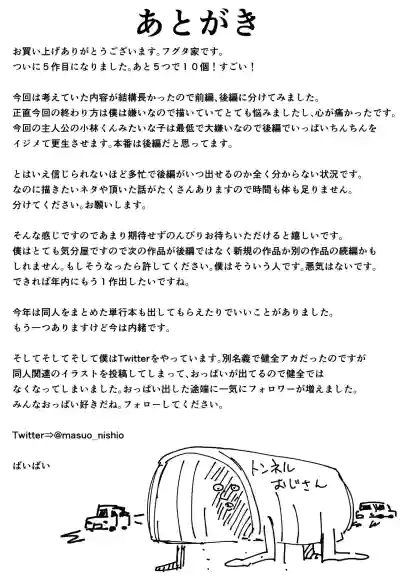 あとがき
お買い上げありがとうございます。フグタ家です。
ついに5作目になりました。あと5つで10個!すごい!
今回は考えていた内容が結構長かったので前編、後編に分けてみました。
正直今回の終わり方は僕は嫌いなので描いていてとても悩みましたし、心が痛かったです。
今回の主人公の小林くんみたいな子は最低で大嫌いなので後編でいっぱいちんちんを
イジメて更生させます。本番は後編だと思ってます。
とはいえ信じられないほど多忙で後編がいつ出せるのか全く分からない状況です。
なのに描きたいネタや頂いた話がたくさんありますので時間も体も足りません。
分けてください。お願いします。
そんな感じですのであまり期待せずのんびりお待ちいただけると嬉しいです。
僕はとても気分屋ですので次の作品が後編ではなく新規の作品か別の作品の続編かも
しれません。もしそうなったら許してください。僕はそういう人です。悪気はないです。
できれば年内にもう1作出したいですね。
今年は同人をまとめた単行本も出してもらえたりでいいことがありました。
もう一つありますけど今は内緒です。
そしてそしてそして僕はTwitterをやっています。別名義で健全アカだったのですが
同人関連のイラストを投稿してしまって、おっぱいが出てるので健全では
なくなってしまいました。おっぱい出した途端に一気にフォロワーが増えました。
みんなおっぱい好きだね。フォローしてください。
Twitter⇒@masuo_nishio
ばいばい
トンネル
おじさん